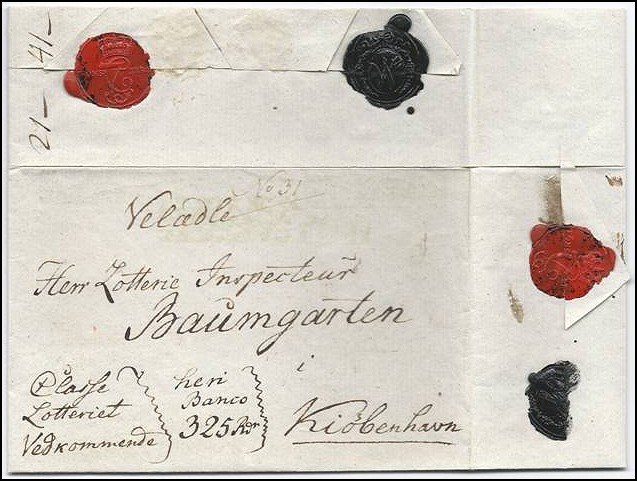 21— 41—
No 31
Velædle
Herr Lotterie Inspecteur
Baumgarten
i
Kiöbenhavn
Classe
Lotteriet
Vedkommende
heri
Banco
325 Rdr